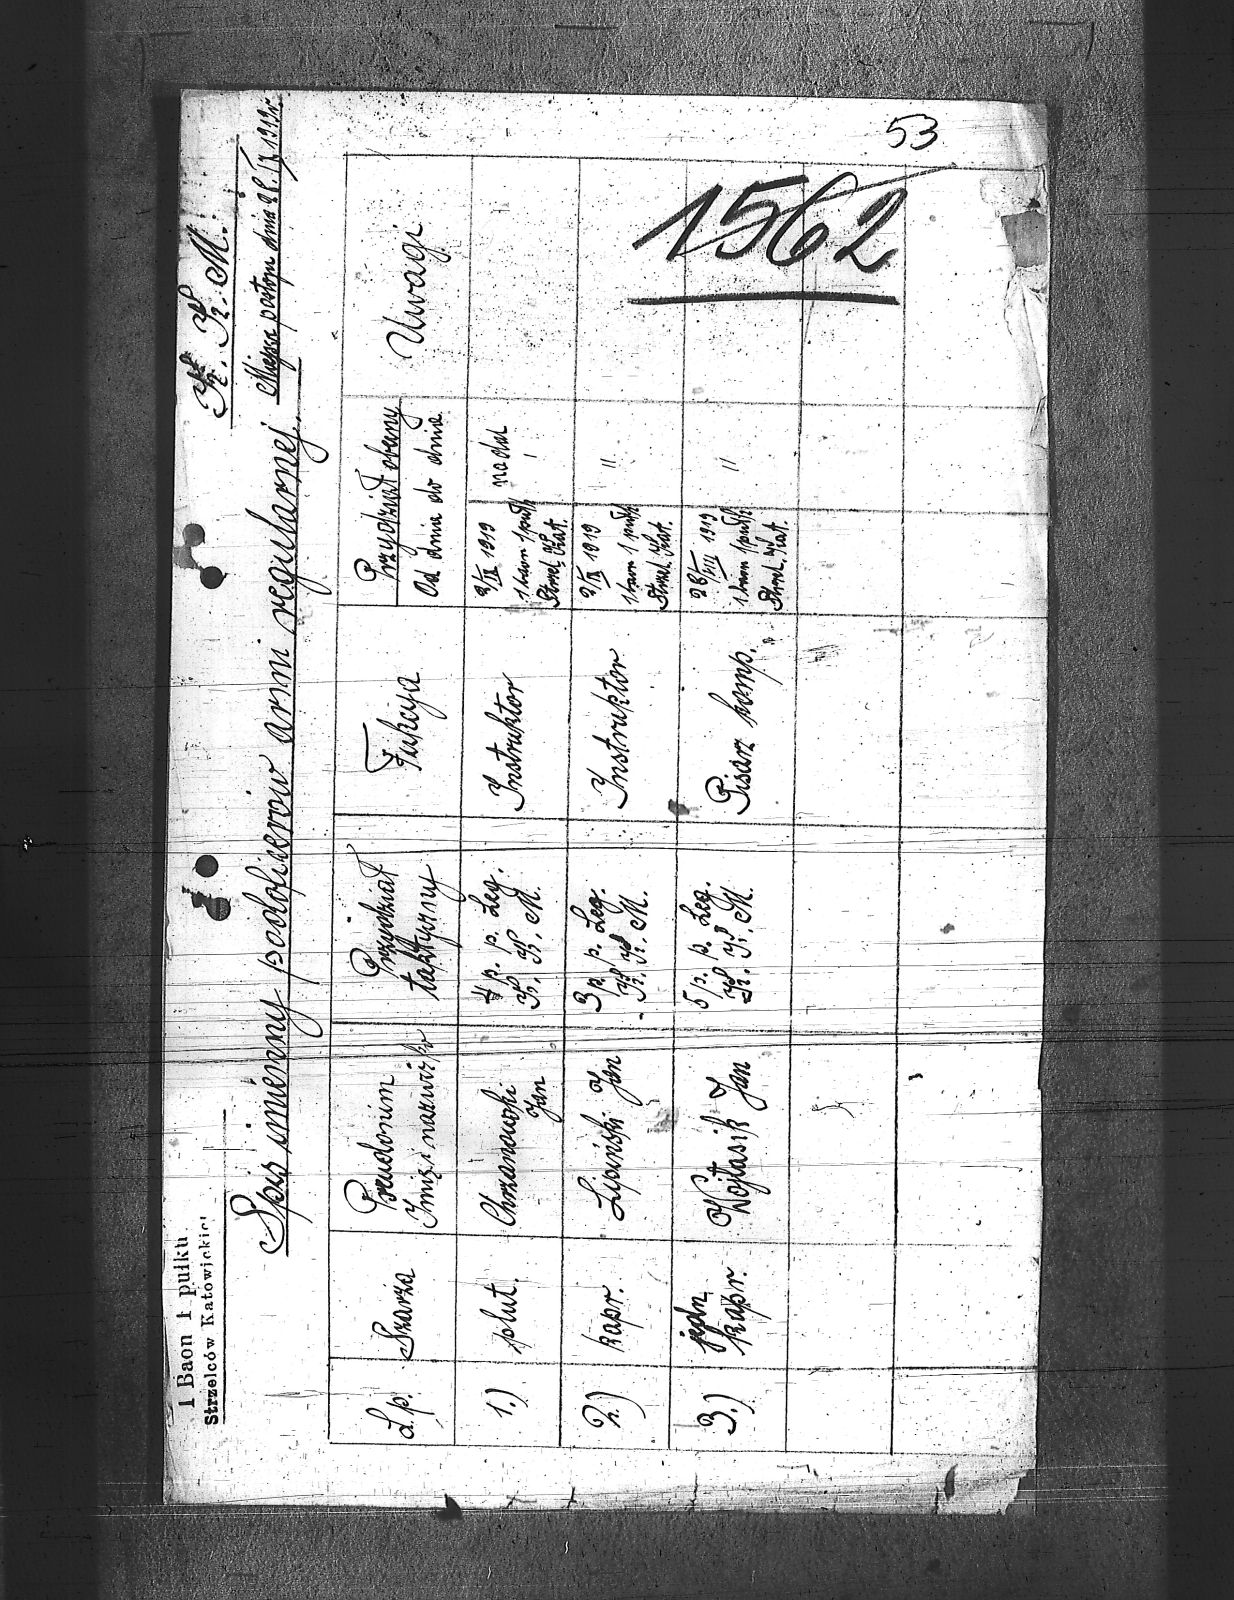 53
1562
1 Baon 1 pułku
Strzelców Katowickic
K. K. M.
Miejsce postoju dnia 1919r.
Spis imienny podoficerów armi regularnej.
L.p. Szarża Pseudonim Przydział Fukcya Przydział obecny Uwagi
Imię i nazwisko taktyczny Od dnia do dnia
1.) plut. Chrzanowski 4 p. p. Leg. Instruktor 2/IX 1919 nadal
Jan K. K. M. 1 baon 1 pułk
Strzel. Kat.
2.) kapr. Lipiński Jan 3 p. p. Leg. Instruktor 2/IX 1919 "
K. K. M. 1 baon 1 pułk
Strzel. Kat.
3.) kapr. Wojtasik Jan 5 p. p. Leg. Pisarz komp. 28/VIII 1919 "
K. K. M. 1 baon 1 pułk
Strzel. Kat.